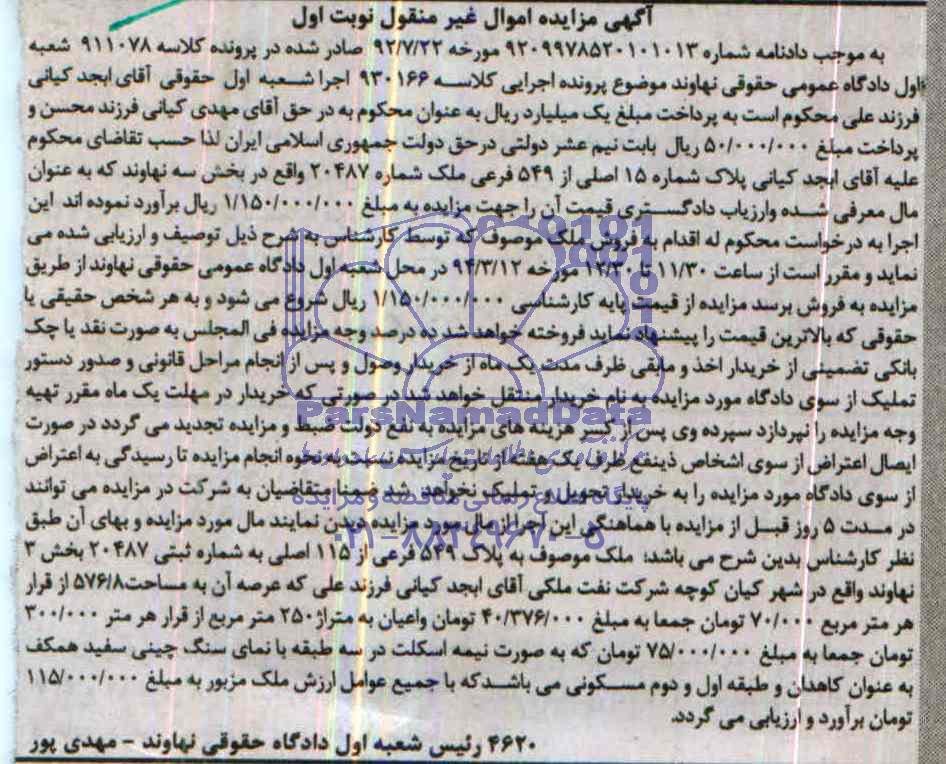 آگهی مزایده اموال غیر منقول نوبت اول
به موجب دادنامه شماره ۹۲۰۹۹۷۸۵۲۰۱۰۱۰۱۳ مورخه ۹۲/۷/۲۲ صادر شده در پرونده کلاسه ۹۱۱۰۷۸ شعبه
اول دادگاه عمومی حقوقی نهاوند موضوع پرونده اجرایی کلاسه ۹۳۰۱۶۶ اجرا شعبه اول حقوقی آقای ابجد کیانی
فرزند علی محکوم است به پرداخت مبلغ یک میلیارد ریال به عنوان محکوم به در حق آقای مهدی کیانی فرزند محسن و
پرداخت مبلغ ۵۰/۰۰۰/۰۰۰ ریال بابت نیم عشر دولتی درحق دولت جمهوری اسلامی ایران لذا حسب تقاضای محکوم
علیه آقای ابجد کیانی پلاک شماره ۱۵ اصلی از ۵۴۹ فرعی ملک شماره ۲۰۴۸۷ واقع در بخش سه نهاوند که به عنوان
مال معرفی شده وارزیاب دادگستری قیمت آن را جهت مزایده به مبلغ ۱/۱۵۰/۰۰۰/۰۰۰ ریال برآورد نموده اند این
اجرا به درخواست محکوم له اقدام به فروش ملک موصوف که توسط کارشناس به شرح ذیل توصیف و ارزیابی شده می
نماید و مقرر است از ساعت ۱۱/۳۰ تا ۱۲/۳۰ مورخه ۹۴/۳/۱۲ در محل شعبه اول دادگاه عمومی حقوقی نهاوند از طریق
مزایده به فروش برسد مزایده از قیمت پایه کارشناسی ۱/۱۵۰/۰۰۰/۰۰۰ ریال شروع می شود و به هر شخص حقیقی یا
حقوقی که بالاترین قیمت را پیشنهاد نماید فروخته خواهد شد ده درصد وجه مزایده فی المجلس به صورت نقد یا چک
بانکی تضمینی از خریدار اخذ و مابقی ظرف مدت یک ماه از خریدار وصول و پس از انجام مراحل قانونی و صدور دستور
تملیک از سوی دادگاه مورد مزایده به نام خریدار منتقل خواهد شد در صورتی که خریدار در مهلت یک ماه مقرر تهیه
وجه مزایده را نپردازد سپرده وی پس از کسر هزینه های مزایده به نفع دولت ضبط و مزایده تجدید می گردد در صورت
ایصال اعتراض از سوی اشخاص ذینفع ظرف یک هفته از تاریخ مزایده نسبت به نحوه انجام مزایده تا رسیدگی به اعتراض
از سوی دادگاه مورد مزایده را به خریدار تحویل و تملیک نخواهد شد ضمنا متقاضیان به شرکت در مزایده می توانند
در مدت ۵ روز قبل از مزایده با هماهنگی این اجرا از مال مورد مزایده دیدن نمایند مال مورد مزایده و بهای آن طبق
نظر کارشناس بدین شرح می باشد: ملک موصوف به پلاک ۵۴۹ فرعی از ۱۱۵ اصلی به شماره ثبتی ۲۰۴۸۷ بخش ۳
نهاوند واقع در شهر کیان کوچه شرکت نفت ملکی آقای ابجد کیانی فرزند علی که عرصه آن به مساحت۵۷۶/۸ از قرار
هر متر مربع ۷۰/۰۰۰ تومان جمعا به مبلغ ۴۰/۳۷۶/۰۰۰ تومان واعیان به متراژ ۲۵۰ متر مربع از قرار هر متر ۳۰۰/۰۰۰
تومان جمعا به مبلغ ۷۵/۰۰۰/۰۰۰ تومان که به صورت نیمه اسکلت در سه طبقه با نمای سنگ چینی سفید همکف
به عنوان کاهدان و طبقه اول و دوم مسکونی می باشد که با جمیع عوامل ارزش ملک مزبور به مبلغ ۱۱۵/۰۰۰/۰۰۰
تومان برآورد و ارزیابی می گردد.
۴۶۲۰ رئیس شعبه اول دادگاه حقوقی نهاوند - مهدی پور
ParsNamadData
پایگاه اطلاع رسانی مناقصه و مزایده
۰۲۱-۸۸۳۴۹۶۷۰-۵